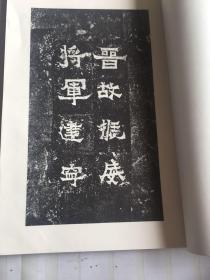 晉故振威
將軍建寧